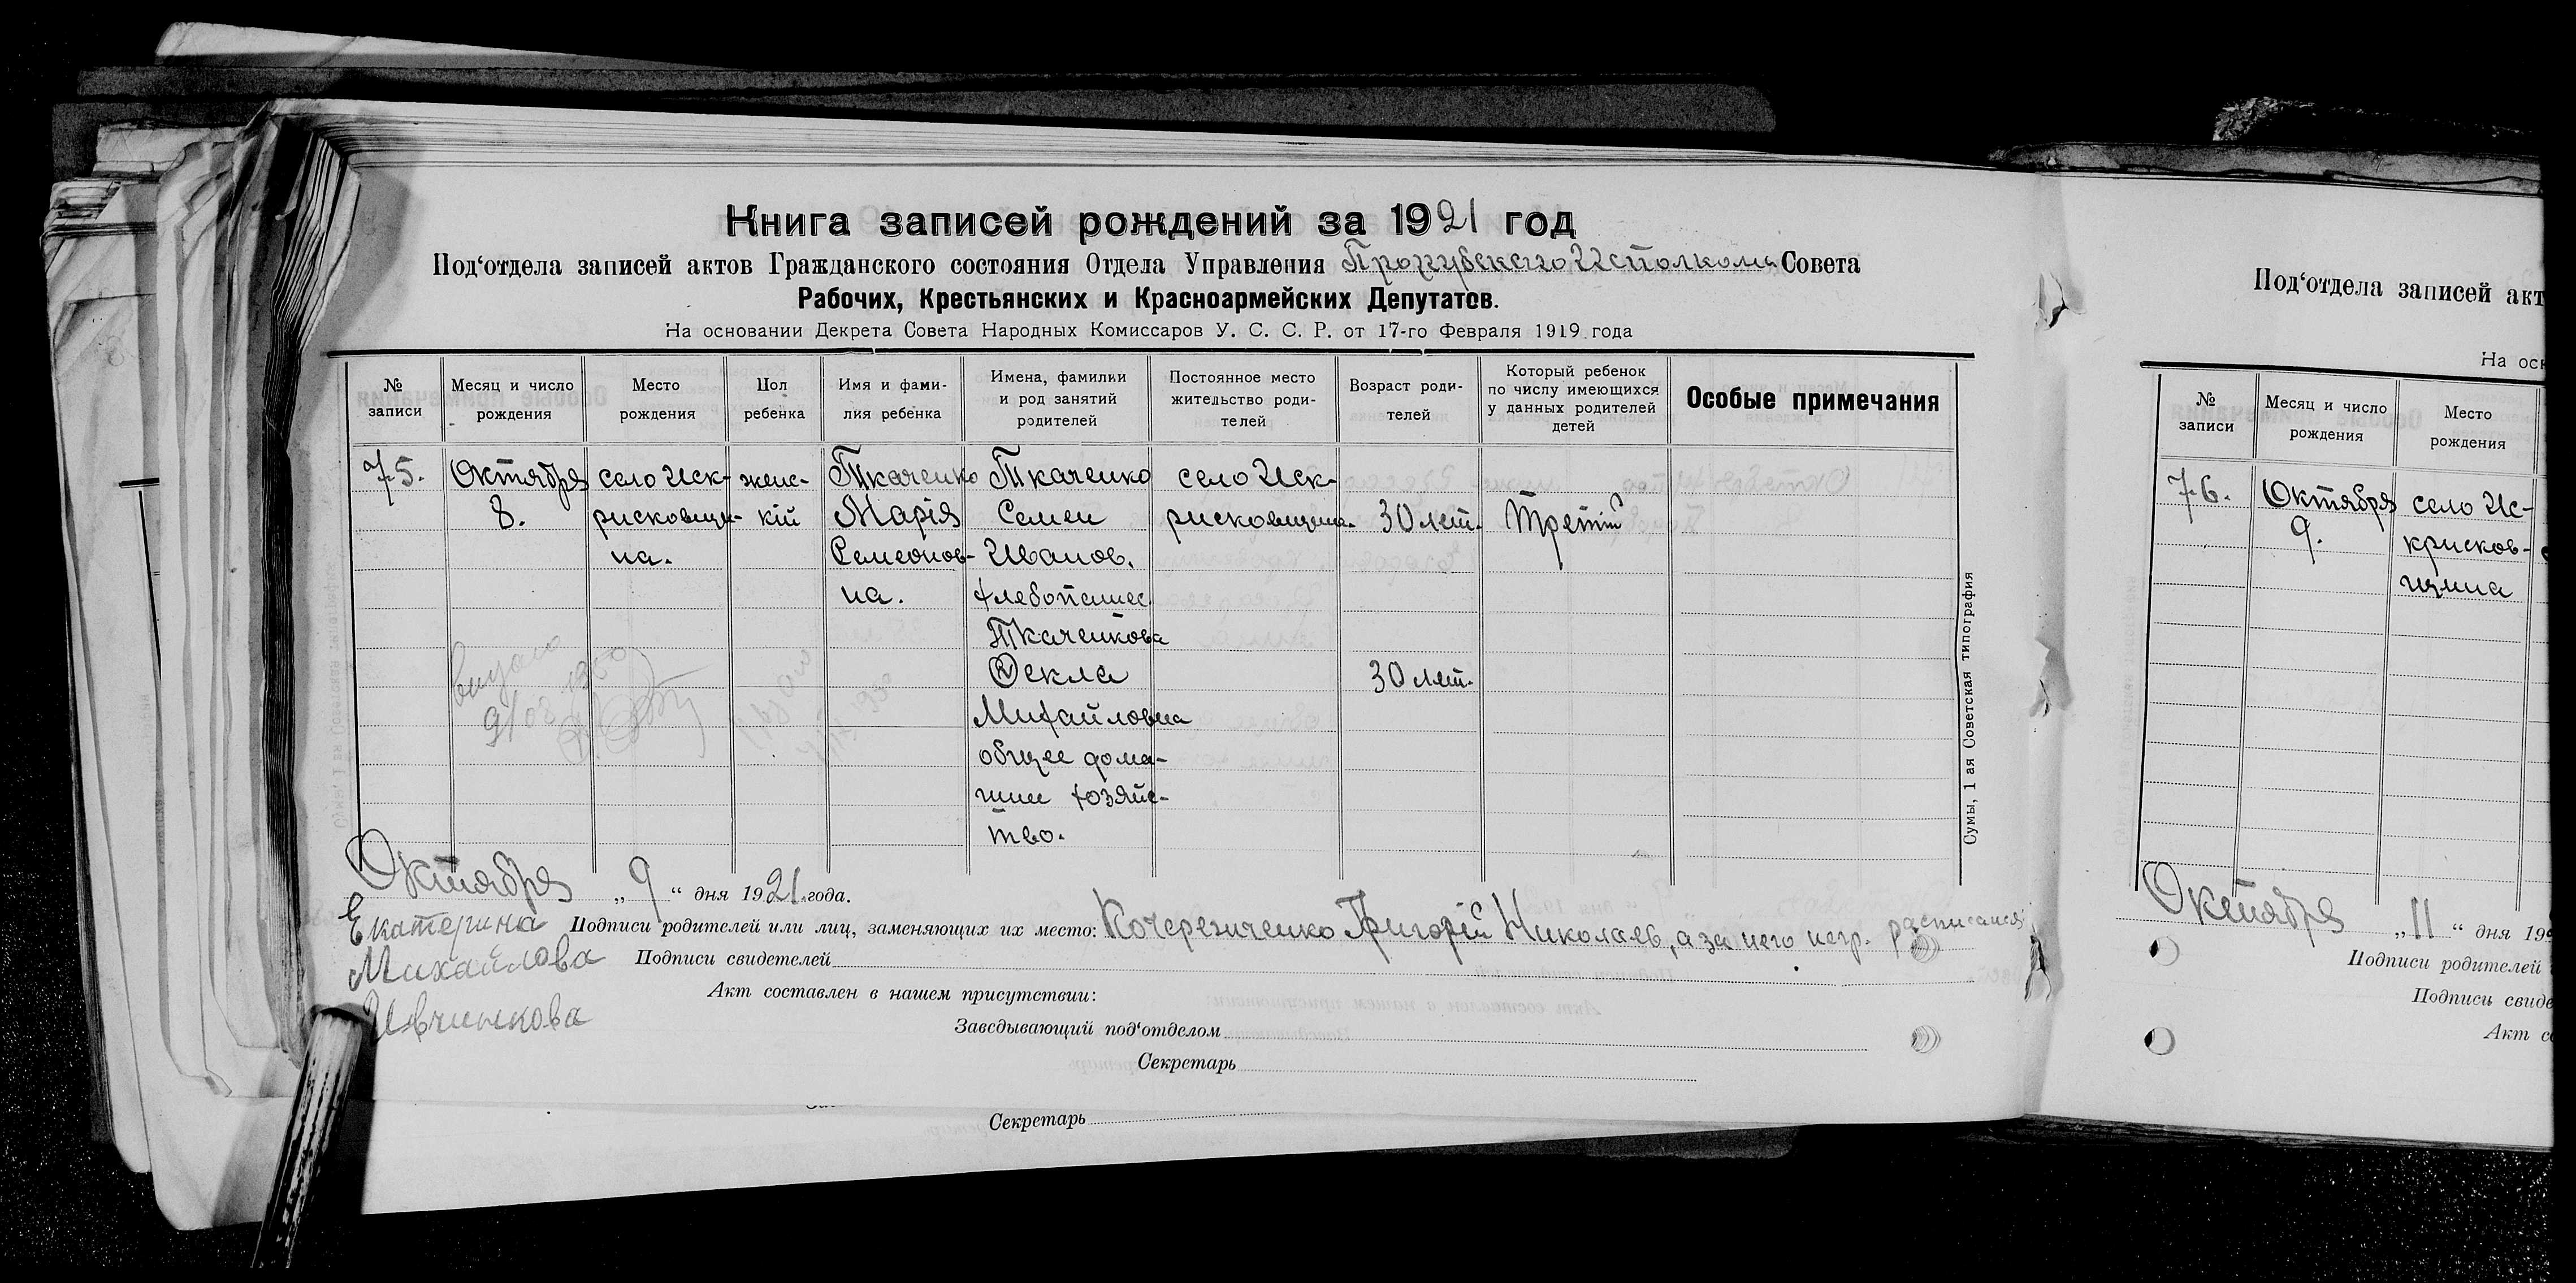 Книга записей рождений за 1921 год
Под‘отдела записей актов Гражданского состояния Отдела Управления Исполкома Совета
Рабочих, Крестьянских и Красноармейских Депутатов.
На основании Декрета Совета Народных Комиссаров У. С. С. Р. от 17-го Февраля 1919 года
№ записи
Месяц и число рождения
Место рождения
Пол ребенка
Имя и фами-
лия ребенка
Имена, фамилии
и род занятий
родителей
Постоянное место
жительство роди-
телей
Возраст роди-
телей
Который ребенок
по числу имеющихся
у данных родителей
детей
Особые примечания
75.
Октября
8.
село Иск-
рисковщи-
на.
женс-
кій
Ткаченко
Марія
Семеонов-
на.
Ткаченко
Семен
Иванов.
хлебопашес
Ткаченкова
Фекла
Михайловна
общее дома-
шнее хозяйс-
тво.
село Иск-
рисковщина.
30 лет.
30 лет.
Третій
Октября „9“ дня 1921 года.
Подписи родителей или лиц, заменяющих их место: Григорій Николаев, а за него негр. расписался
Екатерина
Михайлова
Подписи свидетелей
Акт составлен в нашем присутствии:
Заведывающий под‘отделом
Секретарь
Секретарь
Сумы, 1 ая Советская типография
Под‘отдела записей акт
На осн
№ записи
Месяц и число рождения
Место рождения
76.
Октября
9.
село Ис-
крисков-
щина
Октября „11“ дня 19
Подписи родителей
Подписи свиде
Акт со